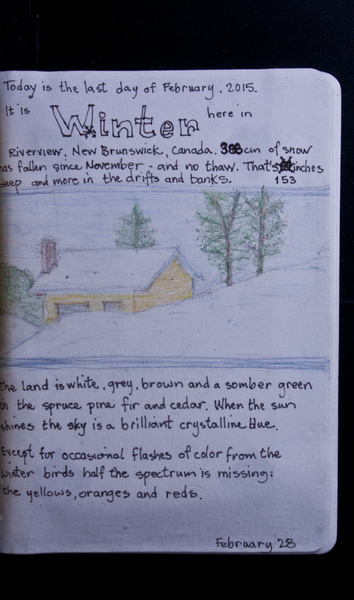 Today is the last day of February, 2015.
It is Winter here in
Riverview, New Brunswick, Canada. 388cm of snow
has fallen since November - and no thaw. That's inches
deep and more in the drifts and banks. 153
The land is white, grey, brown and a somber green
in the spruce pine fir and cedar. When the sun
shines the sky is a brilliant crystalline blue.
Except for occasional flashes of color from the
winter birds half the spectrum is missing:
the yellows, oranges and reds.
February 28